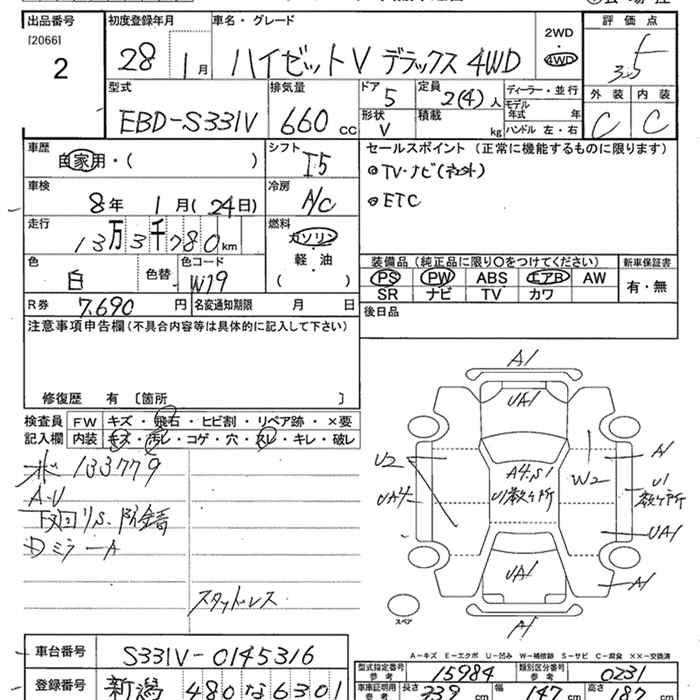 出品番号 初度登録年月 車名・グレード 評価点
[2066]
2
28 1月 ハイゼットV デラックス 4WD
2WD
4WD
3.5
型式 排気量 ドア 定員 ディーラー・並行 外装 内装
EBD-S331V 660cc 5 2(4)人
モデル年式 年式
形状 V 積載 kg ハンドル 左・右 C C
車歴 自家用・( ) シフト I5
セールスポイント(正常に機能するものに限ります)
TV・ナビ(社外)
ETC
車検 8年 1月(24日) 冷房 A/C
走行 13万3千780km 燃料 ガソリン
軽・油
( )
色 白 色替 色コード W19
R券 7,690円 名変通知期限 月 日
装備品(純正品に限り○をつけてください) 新車保証書
PS PW ABS エアB AW 有・無
SR ナビ TV カワ
後日品
注意事項申告欄(不具合内容等は具体的に記入して下さい)
修復歴 有 [箇所 ]
検査員 FW キズ・飛石・ヒビ割・リペア跡・×要
記入欄 内装 キズ・汚レ・コゲ・穴・スレ・キレ・破レ
133779
A・U
下回リS.
DミラーA
スタッドレス
A1
UA1
U2
A4.S1
W2
A1
UA4
U1数ヶ所
U1
数ヶ所
UA1
UA1
A1
スペア
A1
A-キズ E-エクボ U-凹み W-補修跡 S-サビ C-腐食 XX-交換済
車台番号 S331V-0145316
型式指定番号 参考 15984 類別区分番号 参考 0231
登録番号 新潟 480 な 6301
車庫証明用 参考 長さ 339cm 幅 147cm 高さ 187cm